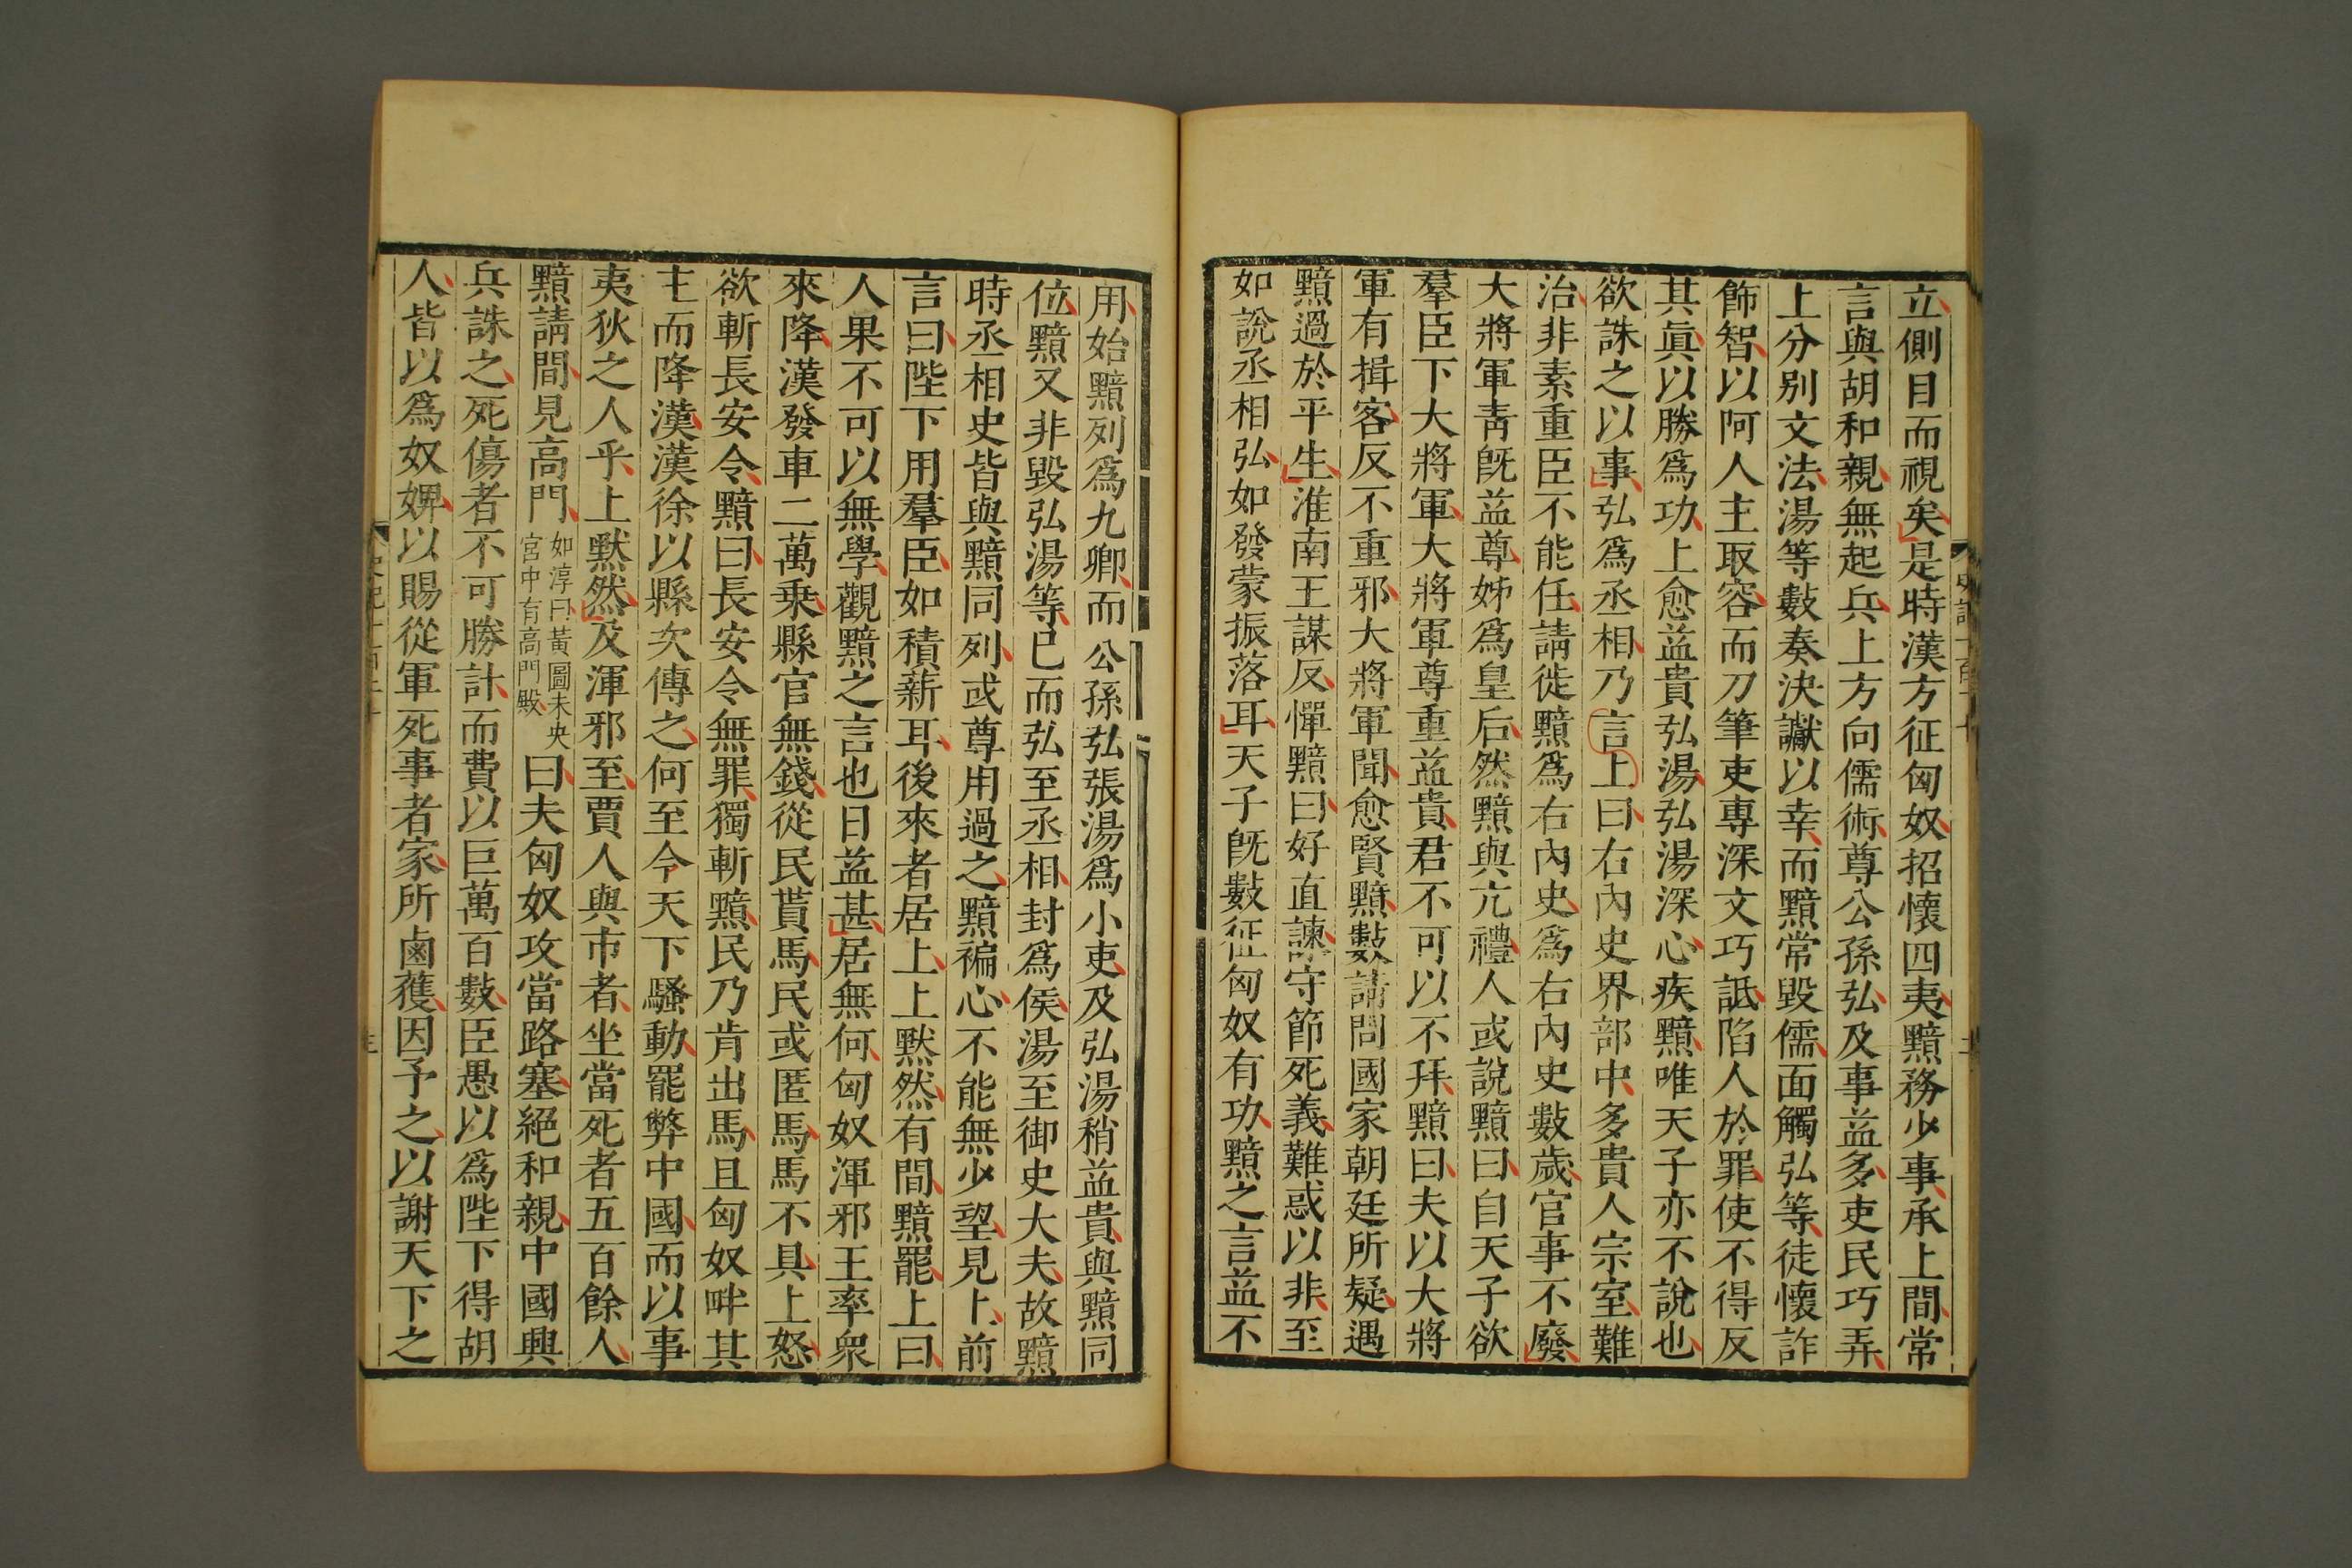 立側目而視矣是時漢方征匈奴招懷四夷黯務少事承上間常
言與胡和親無起兵上方向儒術尊公孫弘及事益多吏民巧弄
上分別文法湯等數奏決讞以幸而黯常毀儒面觸弘等徒懷詐
飾智以阿人主取容而刀筆吏專深文巧詆陷人於罪使不得反
其眞以勝爲功上愈益貴弘湯弘湯深心疾黯唯天子亦不說也
欲誅之以事弘爲丞相乃言上曰右內史界部中多貴人宗室難
治非素重臣不能任請徙黯爲右內史爲右內史數歲官事不廢
大將軍靑旣益尊姊爲皇后然黯與亢禮人或說黯曰自天子欲
羣臣下大將軍大將軍尊重益貴君不可以不拜黯曰夫以大將
軍有揖客反不重邪大將軍聞愈賢黯數請問國家朝廷所疑遇
黯過於平生淮南王謀反憚黯曰好直諫守節死義難惑以非至
如說丞相弘如發蒙振落耳天子旣數征匈奴有功黯之言益不
用始黯列爲九卿而公孫弘張湯爲小吏及弘湯稍益貴與黯同
位黯又非毀弘湯等已而弘至丞相封爲侯湯至御史大夫故黯
時丞相史皆與黯同列或尊用過之黯褊心不能無少望見上前
言曰陛下用羣臣如積薪耳後來者居上上默然有間黯罷上曰
人果不可以無學觀黯之言也日益甚居無何匈奴渾邪王率衆
來降漢發車二萬乘縣官無錢從民貰馬民或匿馬馬不具上怒
欲斬長安令黯曰長安令無罪獨斬黯民乃肯出馬且匈奴畔其
主而降漢漢徐以縣次傳之何至令天下騷動罷弊中國而以事
夷狄之人乎上默然及渾邪至賈人與市者坐當死者五百餘人
黯請間見高門如淳曰黃圖未央宮中有高門殿曰夫匈奴攻當路塞絕和親中國興
兵誅之死傷者不可勝計而費以巨萬百數臣愚以爲陛下得胡
人皆以爲奴婢以賜從軍死事者家所鹵獲因予之以謝天下之